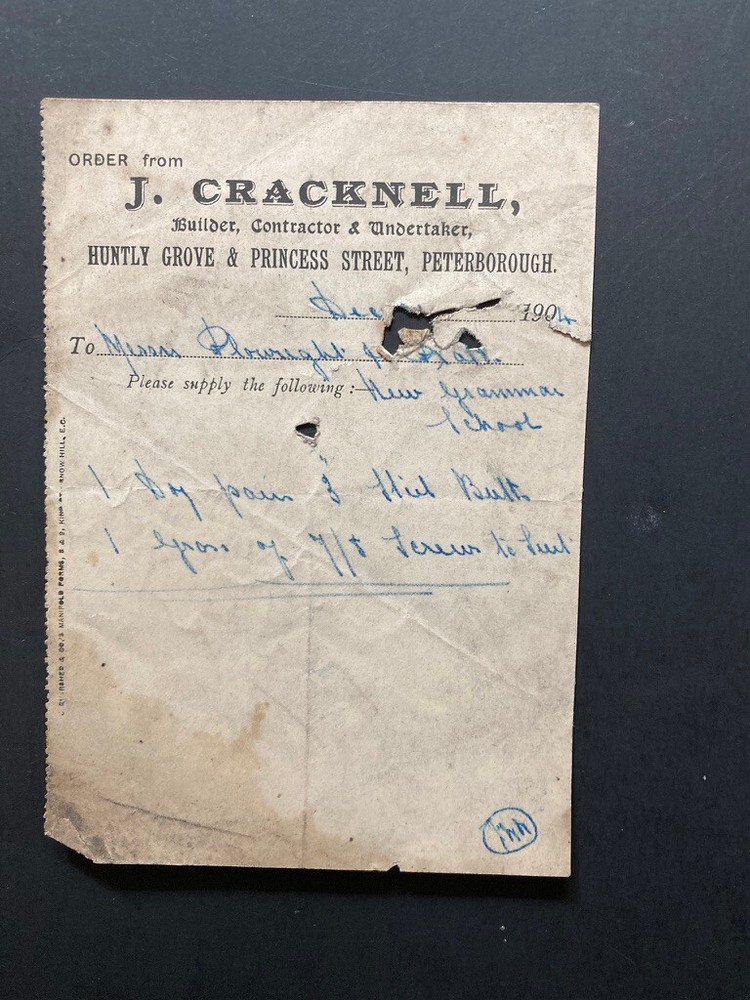 ORDER from
J. CRACKNELL,
Builder, Contractor & Undertaker,
HUNTLY GROVE & PRINCESS STREET, PETERBOROUGH.
Dec 1904
To Messrs Plowright &
Please supply the following :— New Grammar
School
1 Doz pair 3 Steel Butts
1 Gross of 7/8 Screws to Suit
& CO.'S MANIFOLD FORMS, 8 & 9, SNOW HILL, E.C.